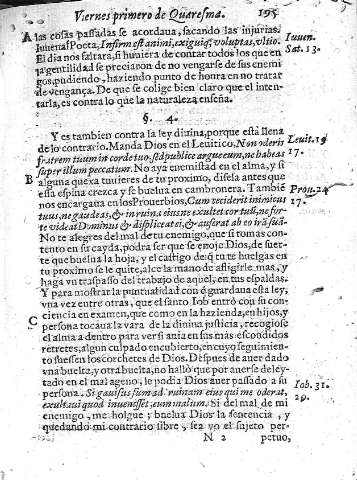 Viernes primero de Quaresma. 195
las cosas passadas se acordaua, sacando las injurias.
Iuuenal Poeta, Infirm est animi, exiguiq; voluptas, vltio. Iuuen.
El dia nos faltara, si huuiera de contar todos los que en Sat. 13.
la gentilidad se preciaron de no vengarse de sus enemi
gos, pudiendo, haziendo punto de honra en no tratar
de vengança. De que se colige bien claro que el inten-
tarla, es contra lo que la naturaleza enseña.
§. 4.
Y es tambien contra la ley diuina, porque està llena
de lo contrario. Manda Dios en el Leuitico, Non oderis Leuit. 19
fratrem tuum in corde tuo, sed publice argue eum, ne habeas 17.
super illum peccatum. No aya enemistad en el alma, y si
B alguna quexa tuuieres de tu proximo, disela antes que
essa espina crezca y se buelua en cambronera. Tambiē
nos encarga en los Prouerbios, Cum ceciderit inimicus Prou. 24
tuus, ne gaudeas, & in ruina eius ne exultet cor tuū, ne for- 17.
te videat Dominus & displiceat ei, & auferat ab eo irā suā
No te alegres del mal de tu enemigo, que si tomas con-
tento en su cayda, podrà ser que se enoje Dios, de suer-
te que buelua la hoja, y el castigo de q̄ tu te huelgas en
tu proximo se le quite, alce la mano de afligirle mas, y
haga vn traspasso del trabajo de aquel, en tus espaldas.
Y para mostrar la puntualidad con q̄ guardaua esta ley,
vna vez entre otras, que el santo Iob entrò con su con-
C ciencia en examen, que como en la hazienda, en hijos, y
persona tocaua la vara de la diuina justicia, recogiose
el alma a dentro para ver si auia en sus mas escondidos
retretes, algun culpado encubierto, en cuyo seguimien-
to fuessen los corchetes de Dios. Despues de auer dado
vna buelta, y otra buelta, no hallò que por auerse deley-
tado en el mal ageno, le podia Dios auer passado a su
persona. Si gauisus sum ad ruinam eius qui me oderat, Iob. 31.
exultaui quod inuenisset eum malum. Si del mal de mi 29.
enemigo, me holguè, y buelua Dios la sentencia, y
quedando mi contrario libre, sea yo el sujeto per-
N 2 petuo,